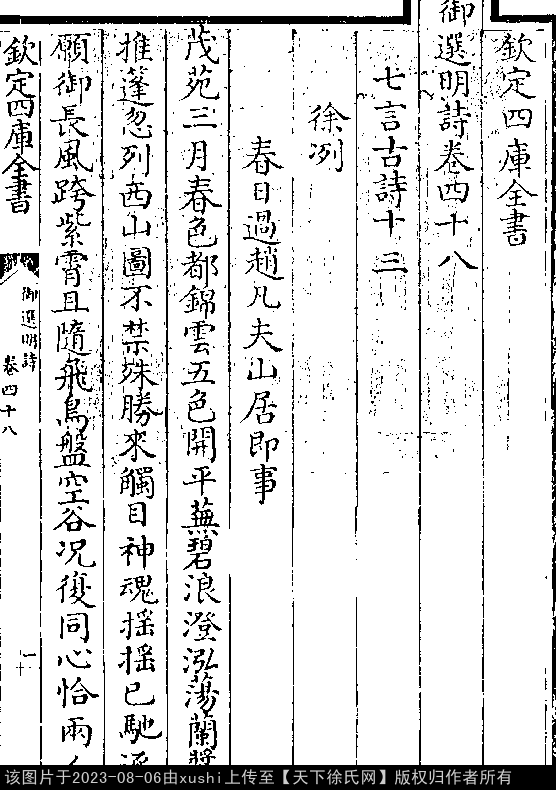 欽定四庫全書
御選明詩卷四十八
七言古詩十三
徐冽
春日過趙凡夫山居即事
茂苑三月春色都錦雲五色開平蕪碧浪澄泓蕩蘭
推蓬忽列西山圖不禁殊勝來觸目神魂揺揺已馳
願御長風跨紫霄且隨飛鳥盤空谷况復同心恰兩
欽定四庫全書
御選明詩
卷四十八
一
该图片于2023-08-06由xushi上传至【天下徐氏网】版权归作者所有